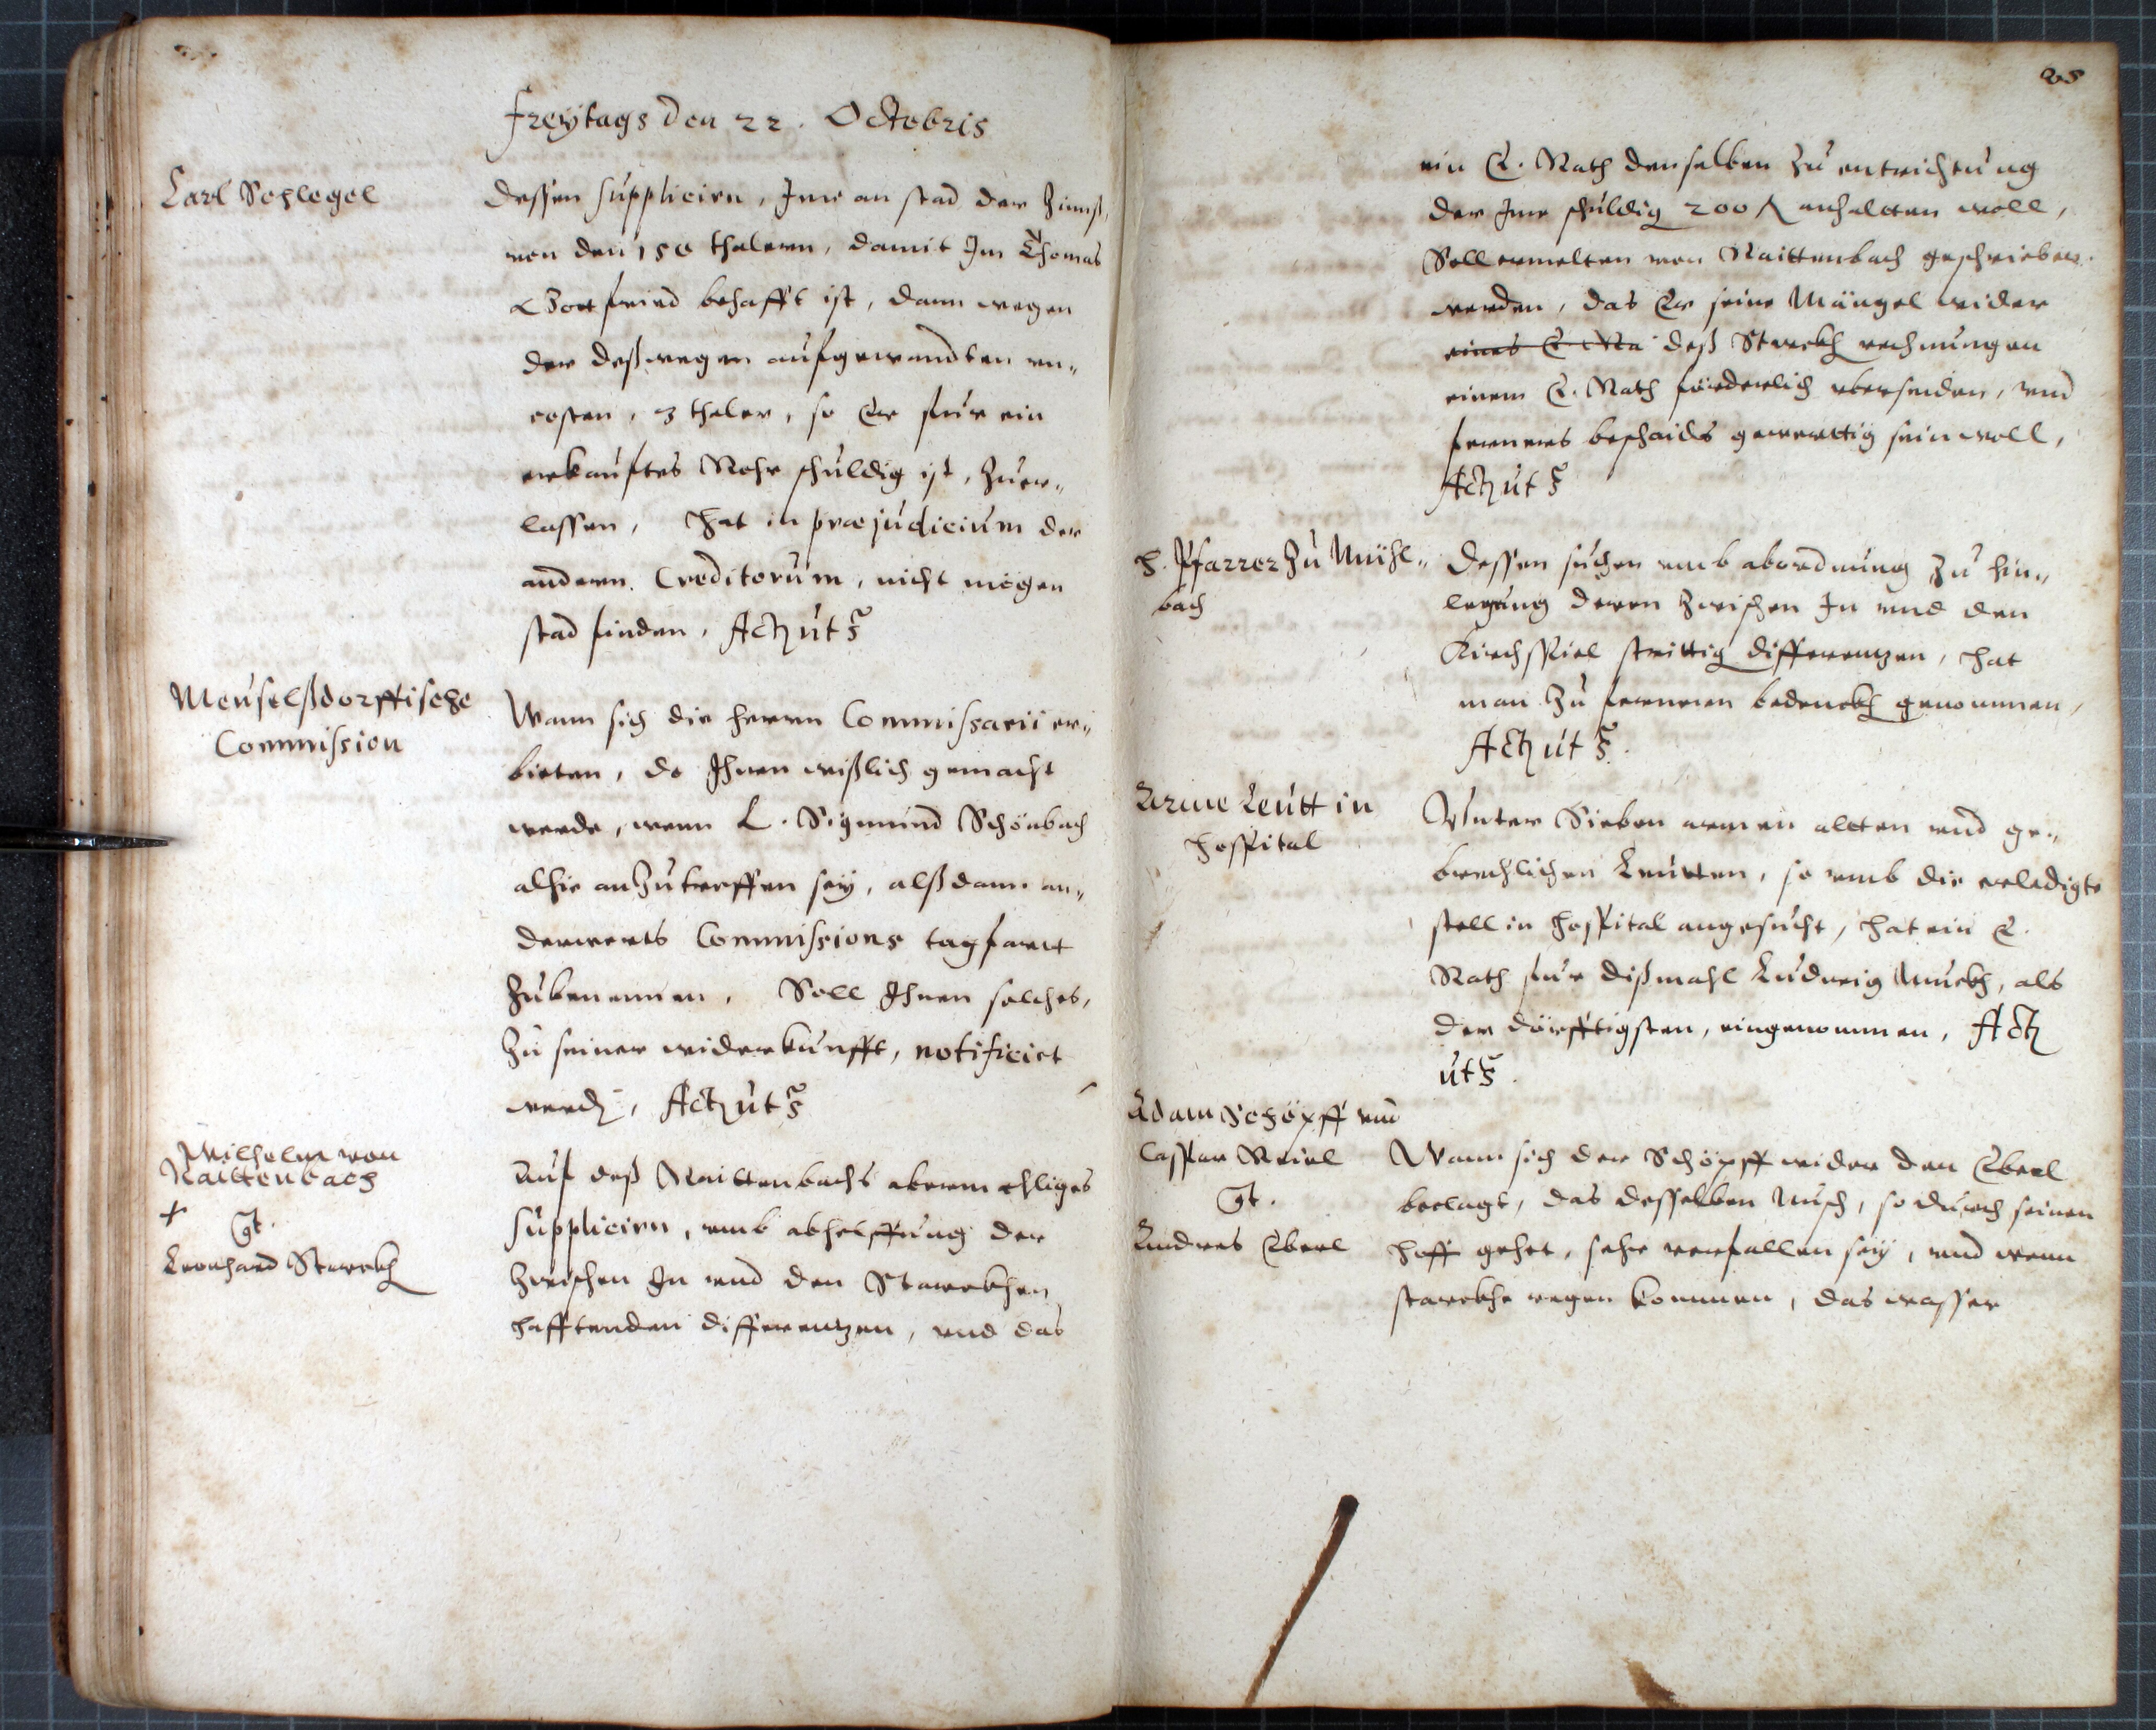 Freÿtags den 22. Octobris
Carl Schlegel
dessen suppliciren, Ime an stad der Zinnß,
von den 150 thalern, damit Im Thomas
Gottfried behafft ist, dann wegen
der deßwegen aufgewandten un„
costen, 3 thaler, so Er für ein
erkauftes Rohr schuldig ist, zuer„
lassen, hat in præjudicium der
andern Creditorum, nicht mögen
stad finden, Act ut s
Meuselßdorffische
Commission
Wann sich die herrn Commissarii er„
bieten, do Ihnen wißlich gemacht
werde, wenn L. Sigmund Schönbach
alhie anzutreffen seÿ, alßdann an„
derwerts Commissions tagfartt
zubenennen, Soll Ihnen solches,
zu seiner widerkunfft, notificirt
werdn, Act ut s
Wilhelm von
Raittenbach
+
Ct.
Leonhard Starckh
Auf deß Raittenbachs abermahliges
suppliciren, umb abhelffung der
zwischen In und den Starckhen
hafftenden differentzen, und das
28
ein E. Rath denselben zu entrichtung
der Ime schuldig 200 f anhaltten woll,
Soll ermelten von Raittenbach geschrieben
werden, das Er seine Mängel wider
eines E. Ra deß Starckh rechnungen
einem E. Rath förderlich ubersenden, und
ferners beschaids gewerttig sein woll,
Act ut s
H. Pfarrer zu Mühl„
bach
Dessen suchen umb abordnung zu hin„
legung deren zwischen In und den
Kirchspiel strittig differentzen, hat
man zu fernerm bedenckh genommen,
Act ut s.
Arme Leutt in
Hospital
Unter Sieben armen altten und ge„
brechlichen Leutten, so umb die erledigte
stell in hospital angesucht, hat ein E.
Rath für dißmahl Ludwig Muckh, als
den dörfftigsten, eingenommen, Act
ut s.
Adam Schöpff und
Caspar Meiel
Ct.
Endres Eberl
Wann sich der Schöpff wider den Eberl
beclagt, das desselben Nusch, so durch seinen
hoff gehet, sehr verfallen seÿ, und wenn
starckhe regen kommen, das wasser